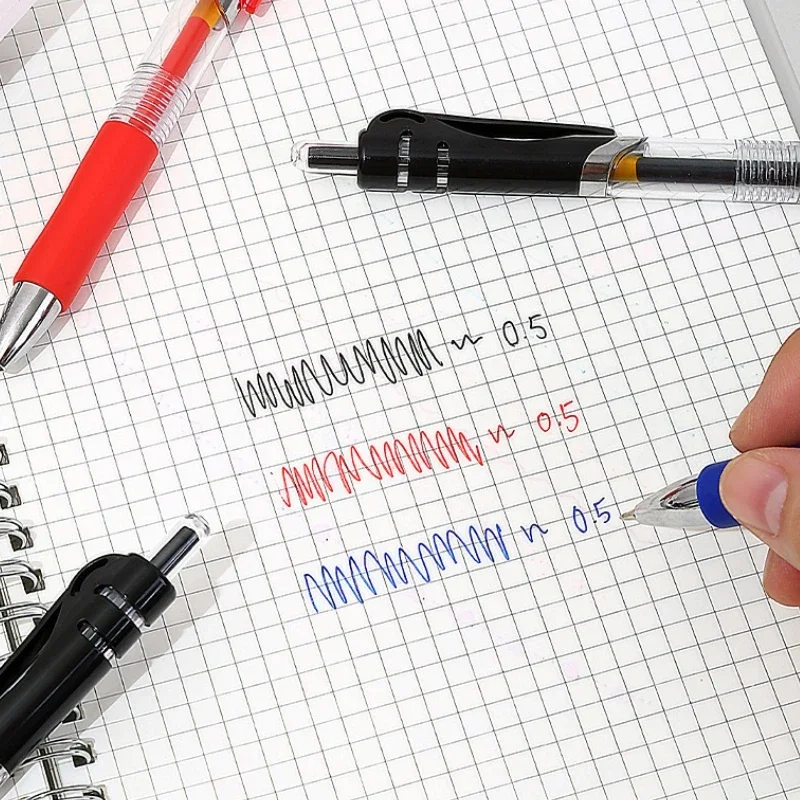 0.5
0.5
0.5